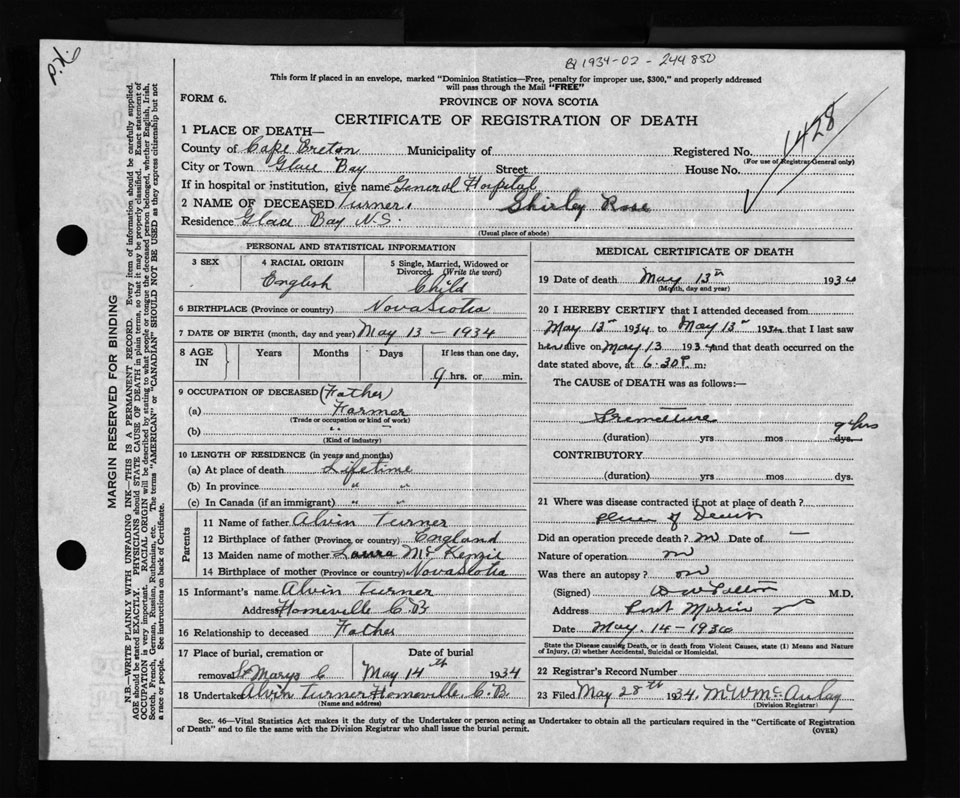 B 1934-02-244850
P.N.
This form If placed in an envelope, marked "Dominion Statistics—Free, penalty for improper use, $300," and properly addressed
will pass through the Mail "FREE"
FORM 6.
PROVINCE OF NOVA SCOTIA
CERTIFICATE OF REGISTRATION OF DEATH
1428
1 PLACE OF DEATH—
County of Cape Breton Municipality of Registered No.
(For use of Registrar General only)
City or Town Glace Bay Street House No.
If in hospital or institution, give name General Hospital
2 NAME OF DECEASED Turner, Shirley Rose
Residence Glace Bay N.S.
(Usual place of abode)
PERSONAL AND STATISTICAL INFORMATION
3 SEX 4 RACIAL ORIGIN 5 Single, Married, Widowed or
Divorced. (Write the word)
English Child
6 BIRTHPLACE (Province or country) Nova Scotia
7 DATE OF BIRTH (month, day and year) May 13 — 1934
8 AGE IN Years Months Days If less than one day,
9 hrs. or min.
9 OCCUPATION OF DECEASED (Father)
(a) Farmer
(Trade or occupation or kind of work)
(b) " "
(Kind of industry)
10 LENGTH OF RESIDENCE (in years and months)
(a) At place of death Lifetime
(b) In province " "
(c) In Canada (if an immigrant) " "
Parents
11 Name of father Alvin Turner
12 Birthplace of father (Province or country) England
13 Maiden name of mother Laura McKenzie
14 Birthplace of mother (Province or country) Nova Scotia
15 Informant's name Alvin Turner
Address Homeville C.B
16 Relationship to deceased Father
17 Place of burial, cremation or Date of burial
removal St Marys C May 14th 1934
18 Undertaker Alvin Turner Homeville C.B.
(Name and address)
MEDICAL CERTIFICATE OF DEATH
19 Date of death May 13th 1934
(Month, day and year)
20 I HEREBY CERTIFY that I attended deceased from
May 13th 1934 to May 13th 1934 that I last saw
her alive on May 13 1934 and that death occurred on the
date stated above, at 6.30P m:
The CAUSE OF DEATH was as follows:—
Premature
9 hrs
(duration) yrs mos dys.
CONTRIBUTORY
(duration) yrs mos dys.
21 Where was disease contracted if not at place of death?
place of Death
Did an operation precede death? no Date of —
Nature of operation no
Was there an autopsy? no
(Signed) M.D.
Address Port Morien
Date May. 14 - 1934
State the Disease causing Death, or in death from Violent Causes, state (1) Means and Nature
of Injury, (2) whether Accidental, Suicidal or Homicidal.
22 Registrar's Record Number
23 Filed May 28th 1934. McAulay
(Division Registrar)
Sec. 46—Vital Statistics Act makes it the duty of the Undertaker or person acting as Undertaker to obtain all the particulars required in the "Certificate of Registration
of Death" and to file the same with the Division Registrar who shall issue the burial permit.
(OVER)
MARGIN RESERVED FOR BINDING
N.B.—WRITE PLAINLY WITH UNFADING INK—THIS IS A PERMANENT RECORD. Every item of information should be carefully supplied.
AGE should be stated EXACTLY. PHYSICIANS should STATE CAUSE OF DEATH in plain terms, so that it may be properly classified. Exact statement of
OCCUPATION is very important. RACIAL ORIGIN will be described by stating to what people or tongue the deceased person belonged, whether English, Irish,
Scotch, French, German, Russian, Ruthenian, etc. The terms "AMERICAN" or "CANADIAN" SHOULD NOT BE USED as they express citizenship but not
a race or people. See instructions on back of Certificate.